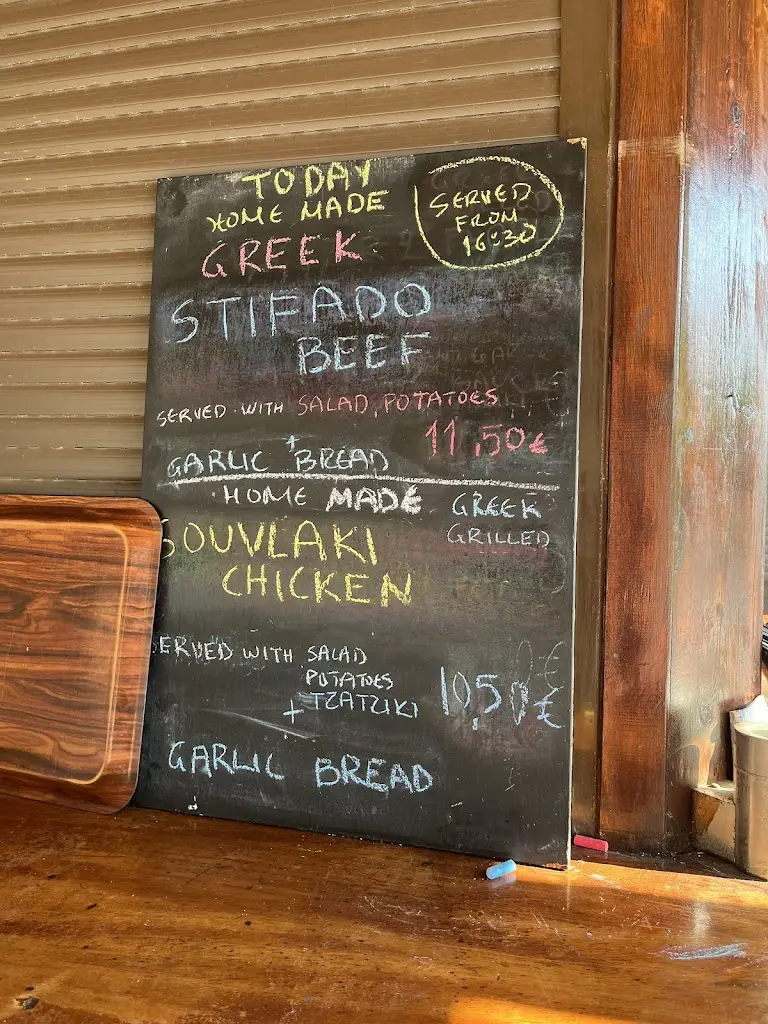 TODAY
HOME MADE
SERVED
FROM
16:30
GREEK
STIFADO
BEEF
SERVED WITH SALAD, POTATOES
+
GARLIC BREAD
11,50€
HOME MADE GREEK
GRILLED
SOUVLAKI
CHICKEN
ERVED WITH SALAD
POTATOES
+ TZATZIKI
10,50€
GARLIC BREAD